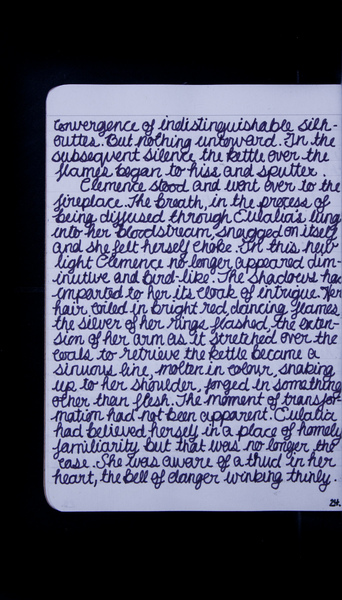 convergence of indistinguishable silh-
outtes. But nothing untoward. In the
subsequent silence the kettle over the
flames began to hiss and sputter.
Clemence stood and went over to the
fireplace. The breath, in the process of
being diffused through Eulalia's lungs
into her bloodstream, snagged on itself
and she felt herself choke. In this new
light Clemence no longer appeared dim-
inutive and bird-like. The shadows had
imparted to her its cloak of intrigue. Her
hair coiled in bright red dancing flames,
the silver of her rings flashed, the exten-
sion of her arm as it stretched over the
coals to retrieve the kettle became a
sinuous line, molten in colour, snaking
up to her shoulder, forged in something
other than flesh. The moment of transfor-
mation had not been apparent. Eulalia
had believed herself in a place of homely
familiarity but that was no longer the
case. She was aware of a thud in her
heart, the bell of danger winking thinly.